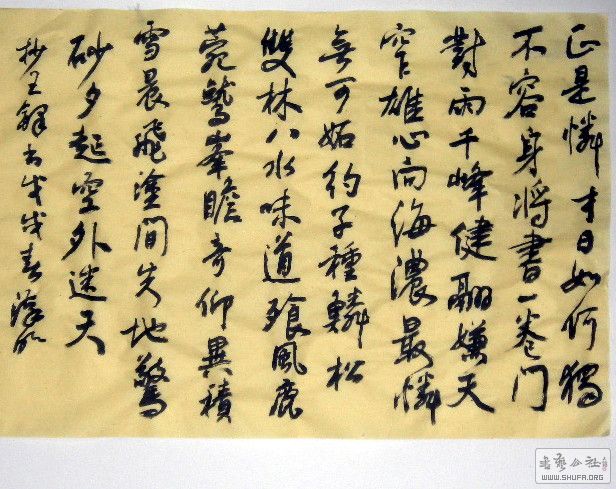 正是憐才日如何獨
不容身將書一卷門
對雨千峰健翮嫌天
窄雄心向海濃最憐
無可妬約子種鱗松
雙林八水味道飡風鹿
菀鷲峯瞻奇仰異積
雪晨飛塗間失地驚
砂夕起空外迷天
抄王鐸書戊戌春
書藝公社
WWW.SHUFA.ORG